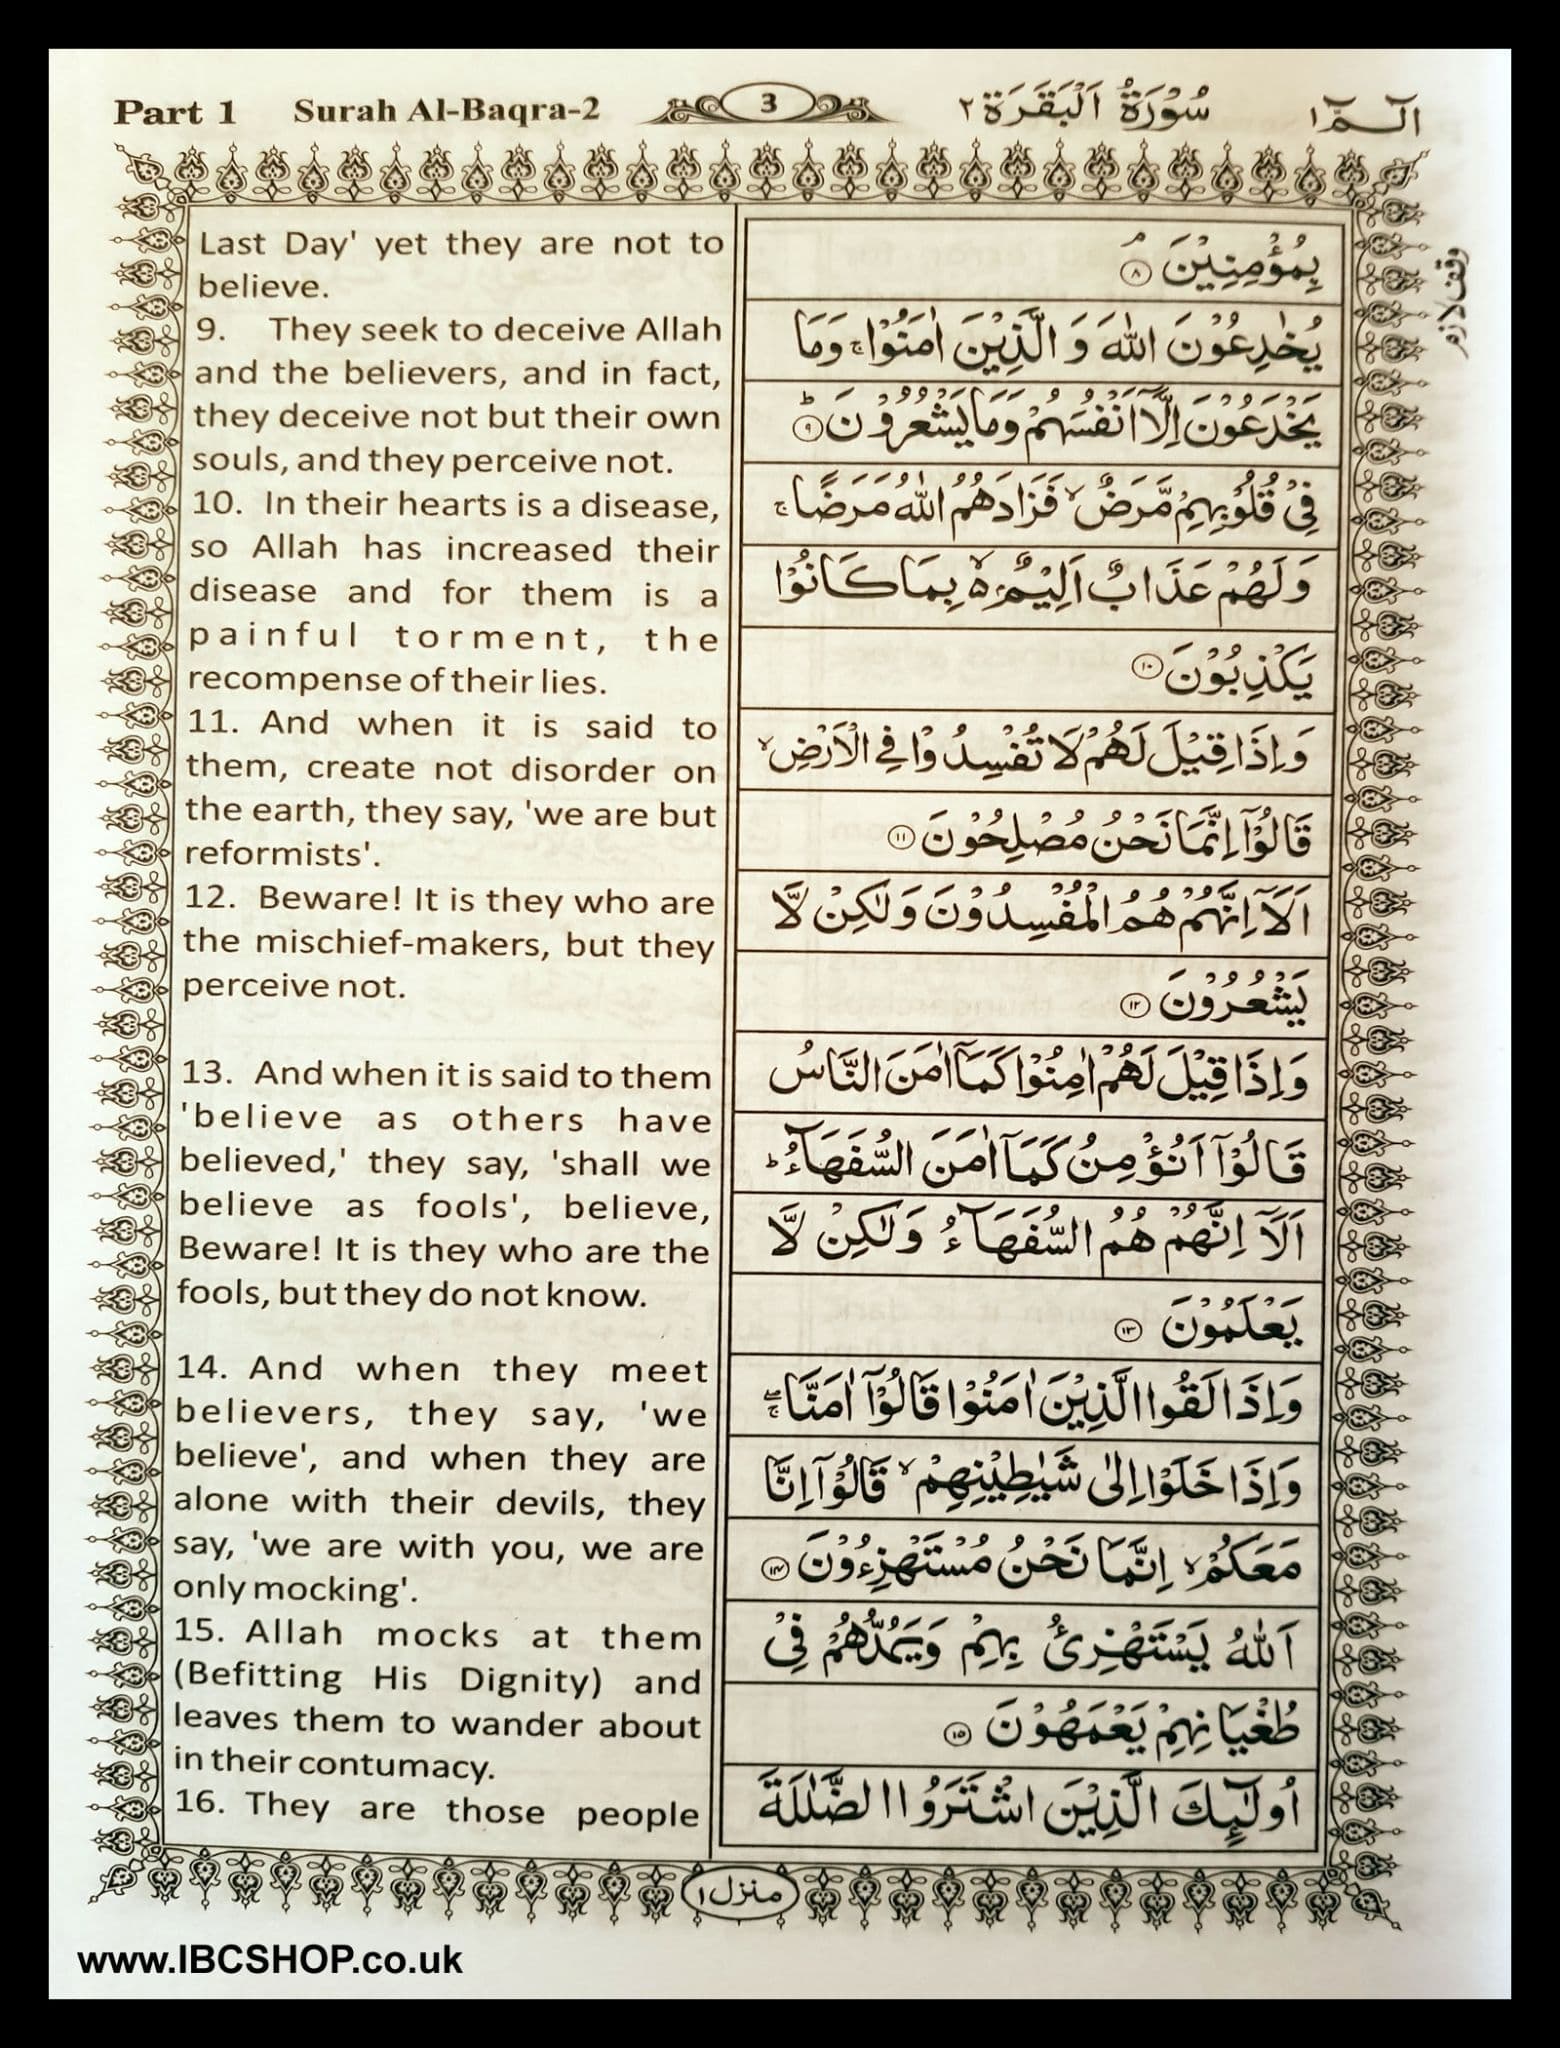 Part 1 Surah Al-Baqra-2 3 سُوْرَةُ اَلْبَقَرَة ٢ الٓـمّٓ ١
Last Day' yet they are not to
believe.
9. They seek to deceive Allah
and the believers, and in fact,
they deceive not but their own
souls, and they perceive not.
10. In their hearts is a disease,
so Allah has increased their
disease and for them is a
painful torment, the
recompense of their lies.
11. And when it is said to
them, create not disorder on
the earth, they say, 'we are but
reformists'.
12. Beware! It is they who are
the mischief-makers, but they
perceive not.
13. And when it is said to them
'believe as others have
believed,' they say, 'shall we
believe as fools', believe,
Beware! It is they who are the
fools, but they do not know.
14. And when they meet
believers, they say, 'we
believe', and when they are
alone with their devils, they
say, 'we are with you, we are
only mocking'.
15. Allah mocks at them
(Befitting His Dignity) and
leaves them to wander about
in their contumacy.
16. They are those people
بِمُؤْمِنِيْنَ ۘ ٨
يُخٰدِعُوْنَ اللّٰهَ وَ الَّذِيْنَ اٰمَنُوْا ۚ وَمَا
يَخْدَعُوْنَ اِلَّاۤ اَنْفُسَهُمْ وَمَا يَشْعُرُوْنَ ؕ ٩
فِيْ قُلُوْبِهِمْ مَّرَضٌ ۙ فَزَادَهُمُ اللّٰهُ مَرَضًا ۚ
وَلَهُمْ عَذَابٌ اَلِيْمٌۢ ۙ۬ بِمَا كَانُوْا
يَكْذِبُوْنَ ١٠
وَاِذَا قِيْلَ لَهُمْ لَا تُفْسِدُوْا فِي الْاَرْضِ ۙ
قَالُوْۤا اِنَّمَا نَحْنُ مُصْلِحُوْنَ ١١
اَلَاۤ اِنَّهُمْ هُمُ الْمُفْسِدُوْنَ وَلٰكِنْ لَّا
يَشْعُرُوْنَ ١٢
وَاِذَا قِيْلَ لَهُمْ اٰمِنُوْا كَمَاۤ اٰمَنَ النَّاسُ
قَالُوْۤا اَنُؤْمِنُ كَمَاۤ اٰمَنَ السُّفَهَآءُ ؕ
اَلَاۤ اِنَّهُمْ هُمُ السُّفَهَآءُ وَلٰكِنْ لَّا
يَعْلَمُوْنَ ١٣
وَاِذَا لَقُوا الَّذِيْنَ اٰمَنُوْا قَالُوْۤا اٰمَنَّا ۖۚ
وَاِذَا خَلَوْا اِلٰى شَيٰطِيْنِهِمْ ۙ قَالُوْۤا اِنَّا
مَعَكُمْ ۙ اِنَّمَا نَحْنُ مُسْتَهْزِءُوْنَ ١٤
اَللّٰهُ يَسْتَهْزِئُ بِهِمْ وَيَمُدُّهُمْ فِيْ
طُغْيَانِهِمْ يَعْمَهُوْنَ ١٥
اُولٰٓئِكَ الَّذِيْنَ اشْتَرَوُا الضَّلٰلَةَ
وقف لازم
منزل ١
www.IBCSHOP.co.uk